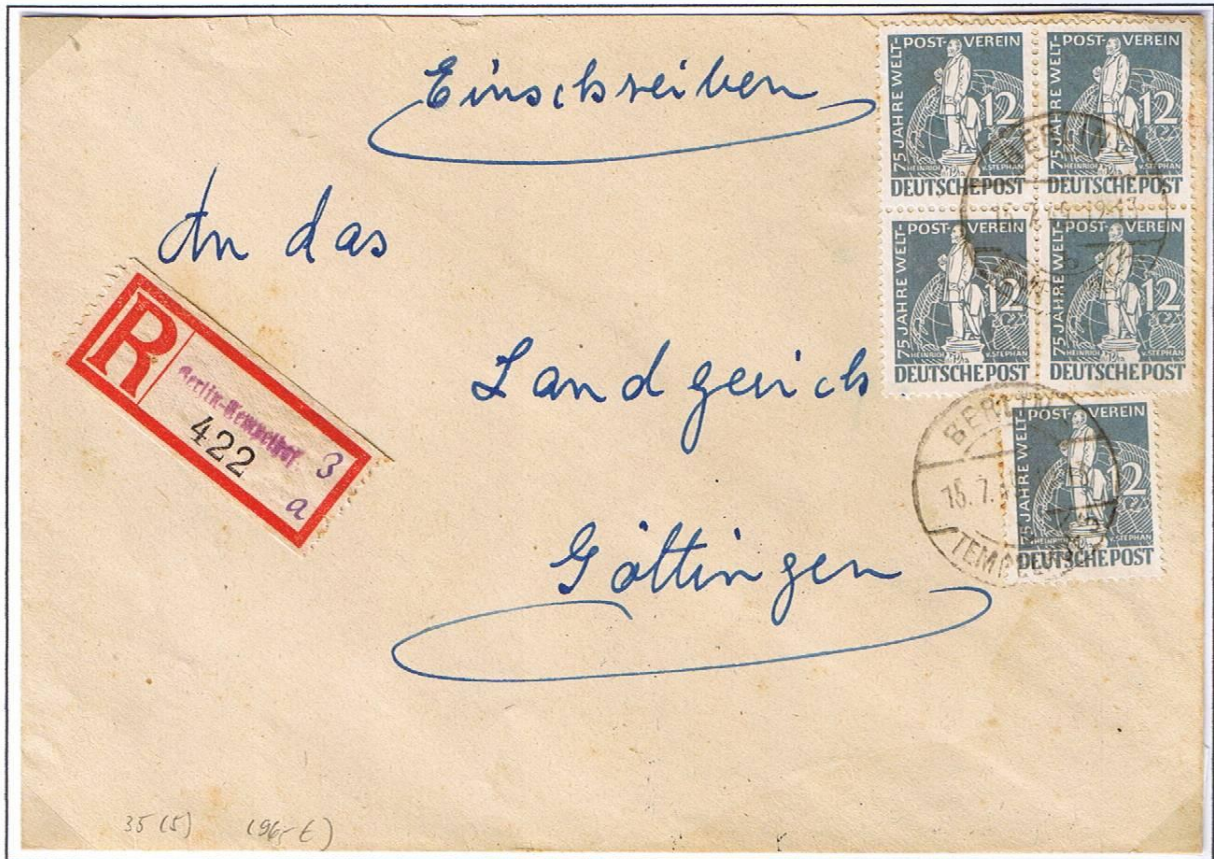 Einschreiben
An das
Landgerich
Göttingen
R
Berlin-Tempelhof 3
422
a
75 JAHRE WELT-POST-VEREIN
12
HEINRICH v. STEPHAN
DEUTSCHE POST
75 JAHRE WELT-POST-VEREIN
12
HEINRICH v. STEPHAN
DEUTSCHE POST
75 JAHRE WELT-POST-VEREIN
12
HEINRICH v. STEPHAN
DEUTSCHE POST
75 JAHRE WELT-POST-VEREIN
12
HEINRICH v. STEPHAN
DEUTSCHE POST
BERLIN
75 JAHRE WELT-POST-VEREIN
12
HEINRICH v. STEPHAN
DEUTSCHE POST
BERLIN
15.7.
35 (5) (96,- €)